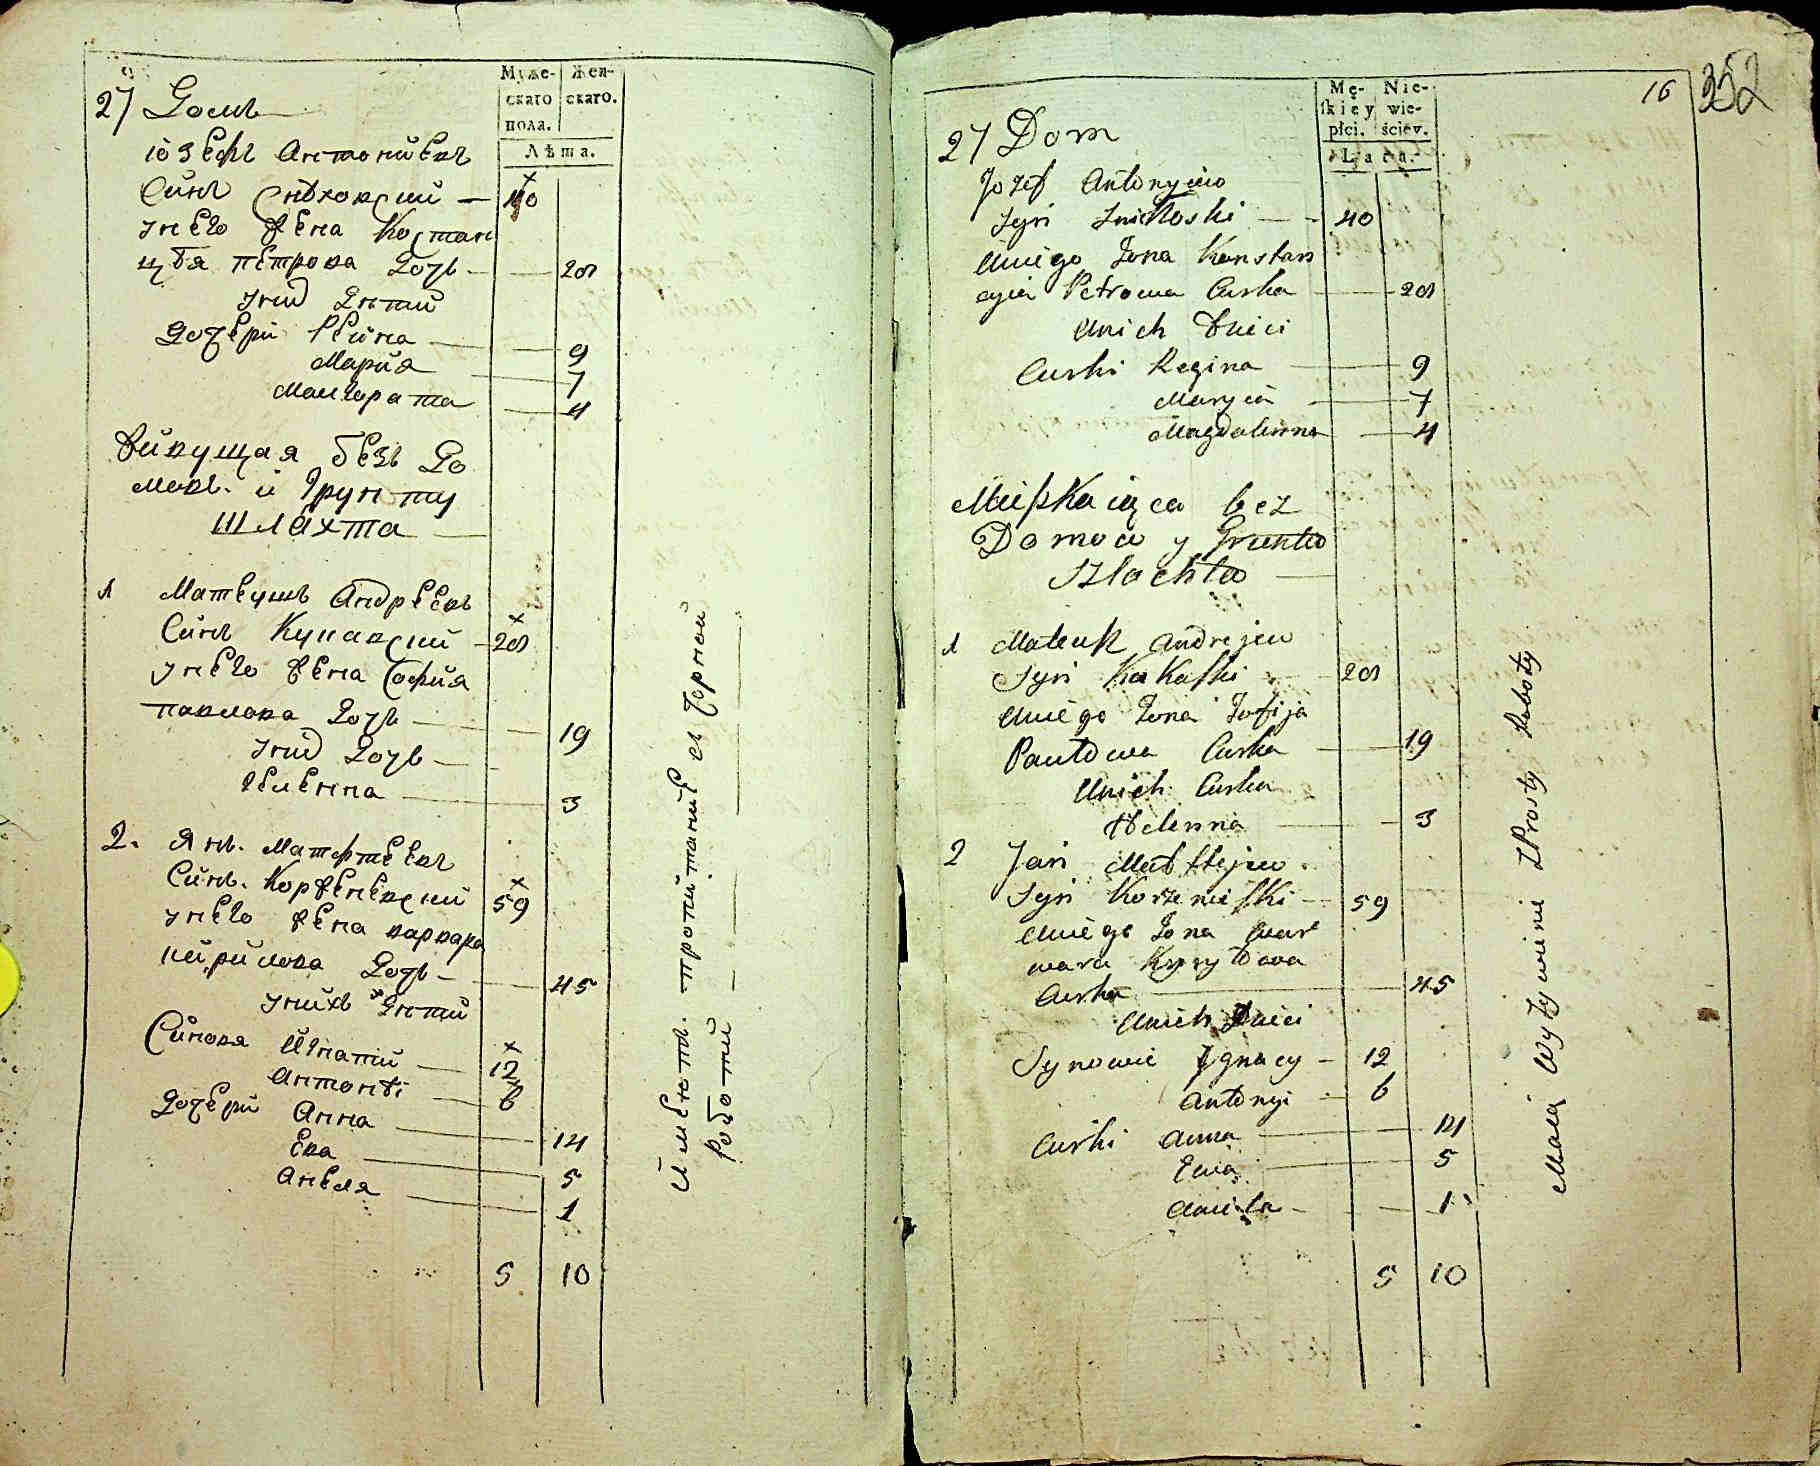 Муже-
скаго
пола.
Жен-
скаго.
Лѣта.
27 Домъ
Іозефъ Антоніевъ
Синъ Снѣховскій — 40
унего жена Костан
цѣя петрова Дочь — 28
унид Дѣтий
Дочери Реина — 9
Мария — 7
Маигората — 4
Живущая безъ До
мовъ. и Грунту
шляхта —
1 Матеушъ Андрѣевъ
Синъ Кукавский — 28
унего жена София
павлова Дочь — 19
унид Дочь —
Гелена — 3
2. Янъ. Матфтеевъ
Синъ. Корженевский 59
унего жена варвара
кирилова Дочь — 45
унихъ Дѣтий
Синовя Игнатий — 12
Антонѣй — 6
Дочери Анна — 14
Ева — 5
Анеля — 1
5 10
Имѣютъ. пропитание съ Чорной
Роботи
16
352
Mę-
skiey
płci.
Nie-
wie-
ściey.
Lata.
27 Dom
Jozef Antonyiew
Syn Snichoski — 40
Uniego Żona Konstan
cyia Petrowa Curka — 28
Unich Dzieci
Curki Regina — 9
Maryia — 7
Magdalenna — 4
Mieszkaiąca bez
Domow y Gruntu
Szlachta —
1 Mateusz Andrejew
Syn Kukaski 28
Uniego Żona Zofija
Pawłowa Curka — 19
Unich Curka
Helenna — 3
2 Jan Mattfiejew
Syn Korzenieski — 59
Uniego Żona War
wara Kyryłowa
Curka — 45
Unich Dzieci
Synowie Ignacy — 12
Antonyi — 6
Curki Anna — 14
Ewa — 5
Aniela — 1
5 10
Maią Wyżywienie z Prosty Roboty